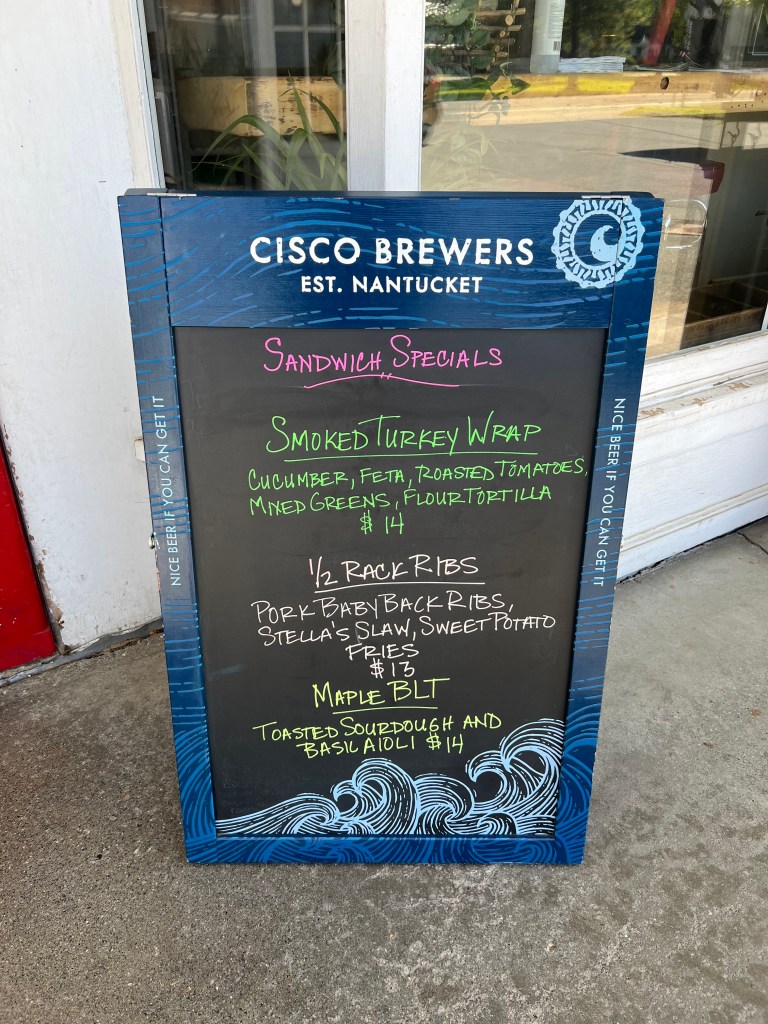 CISCO BREWERS
EST. NANTUCKET
NICE BEER IF YOU CAN GET IT
NICE BEER IF YOU CAN GET IT
SANDWICH SPECIALS
SMOKED TURKEY WRAP
CUCUMBER, FETA, ROASTED TOMATOES,
MIXED GREENS, FLOUR TORTILLA
$ 14
1/2 RACK RIBS
PORK BABY BACK RIBS,
STELLA'S SLAW, SWEET POTATO
FRIES
$13
MAPLE BLT
TOASTED SOURDOUGH AND
BASIL AIOLI $14